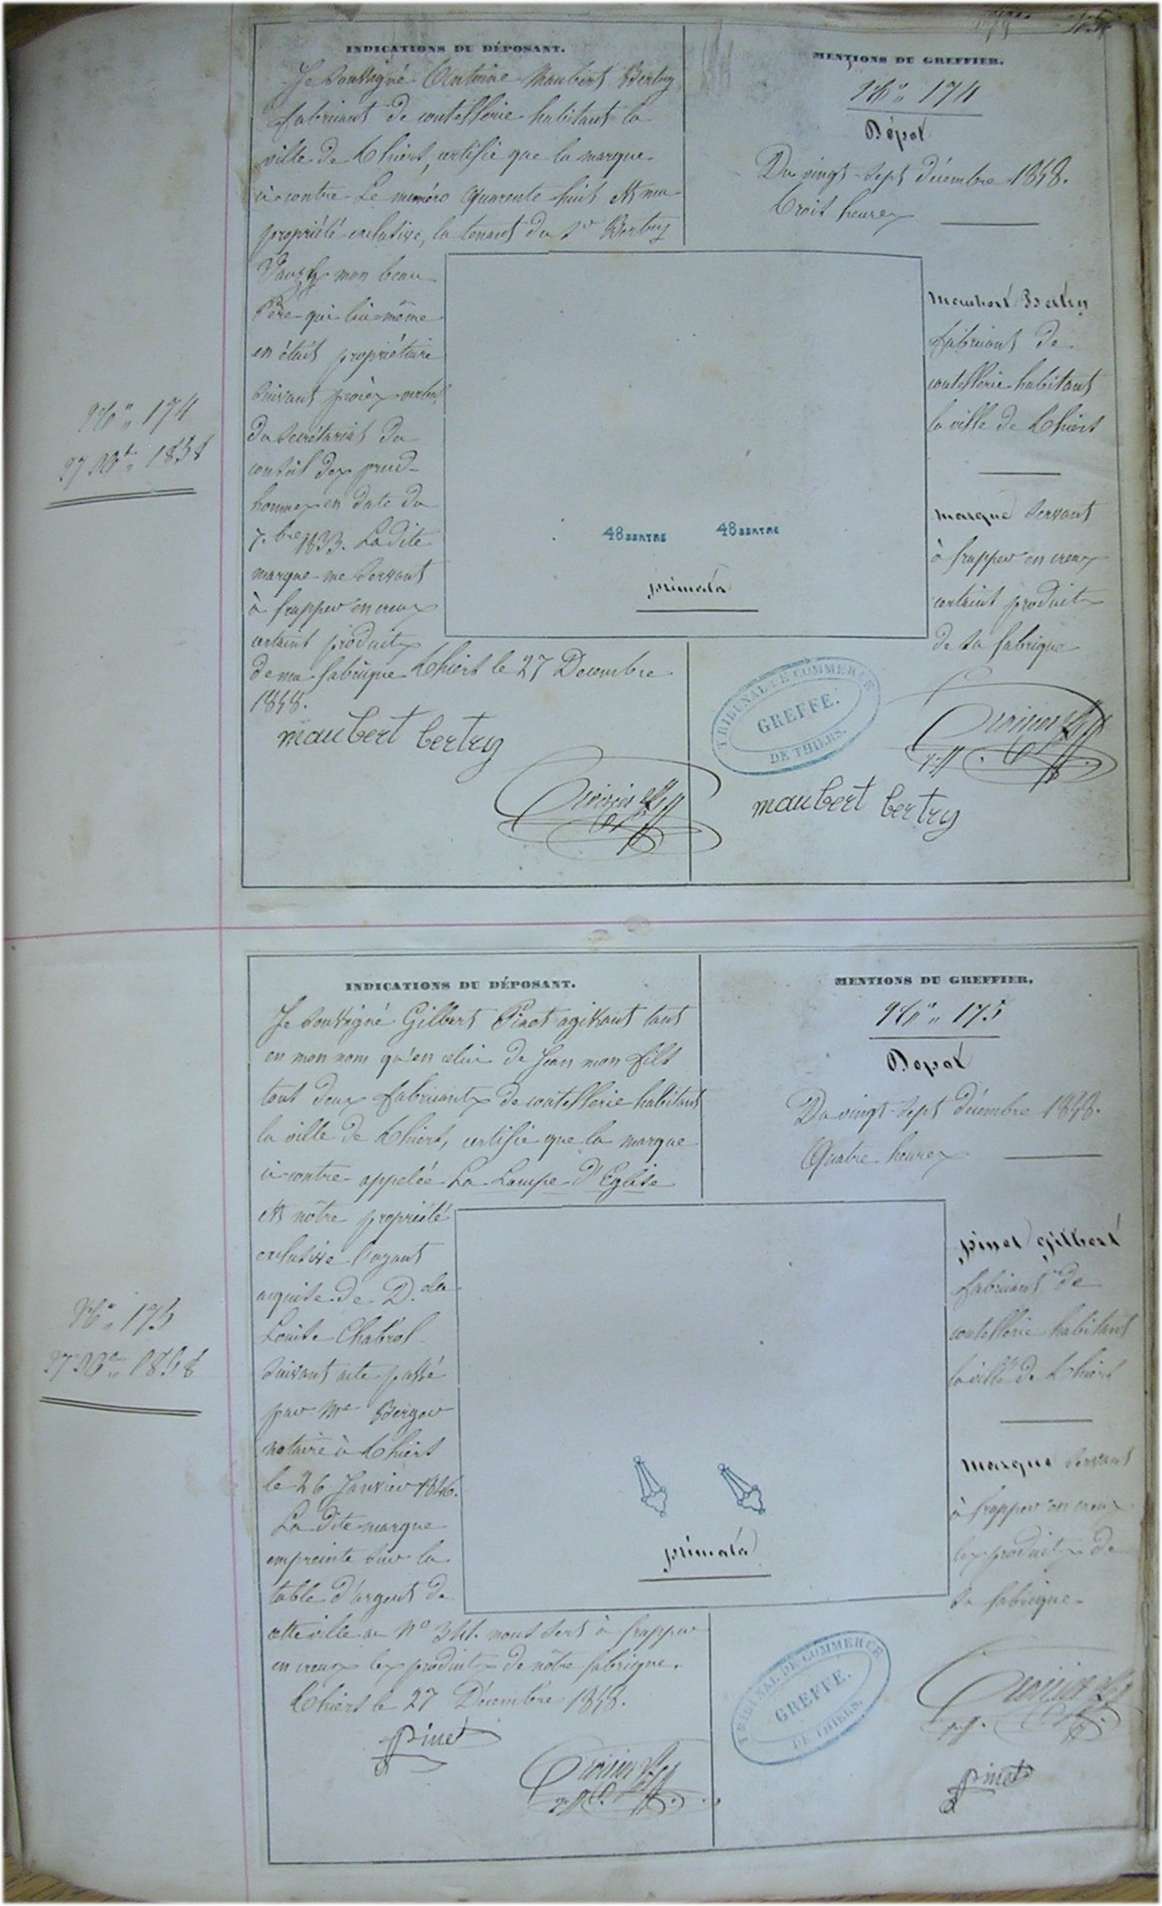 INDICATIONS DU DÉPOSANT.
Je soussigné Antoine Maubert Bertry
fabricant de coutellerie habitant la
ville de Thiers, certifie que la marque
ci contre Le numéro Quarente huit est ma
propriété exclusive, la tenant du Sr Bertry
mon beau
Père qui lui même
en était propriétaire
suivant procès verbal
du secrétariat du
conseil des prud-
hommes en date du
7.bre 1833. La dite
marque me servant
à frapper en creux
certains produits
de ma fabrique Thiers le 27 Decembre
1858.
maubert bertry
MENTIONS DU GREFFIER.
No 174
Dépot
Du vingt-sept décembre 1858.
trois heures
maubert Bertry
fabricant de
coutellerie habitant
la ville de Thiers
marque servant
à frapper en creux
certains produits
de sa fabrique
48 BERTRE 48 BERTRE
primata
TRIBUNAL DE COMMERCE
GREFFE.
DE THIERS.
maubert bertry
No 174
27 Xbre 1858
INDICATIONS DU DÉPOSANT.
Je soussigné Gilbert Pinet agissant tant
en mon nom qu'en celui de Jean mon fils
tout deux fabricants de coutellerie habitant
la ville de Thiers, certifie que la marque
ci contre appelée La Lampe d'Eglise
est nôtre propriété
exclusive l'ayant
acquise de D.lle
Louise Chabrol
suivant acte passé
par Me Berger
notaire à Thiers
le 26 Janvier 1846.
La dite marque
empreinte sur la
table d'argent de
cette ville au No 341. nous sert à frapper
en creux les produits de nôtre fabrique.
Thiers le 27 Décembre 1858.
Pinet
MENTIONS DU GREFFIER.
No 175
Depot
Du vingt-sept décembre 1858.
Quatre heures
pinet gilbert
fabricant de
coutellerie habitant
la ville de Thiers
marque servant
à frapper en creux
les produits de
sa fabrique.
primata
TRIBUNAL DE COMMERCE
GREFFE.
DE THIERS.
Pinet
No 175
27 Xbre 1858